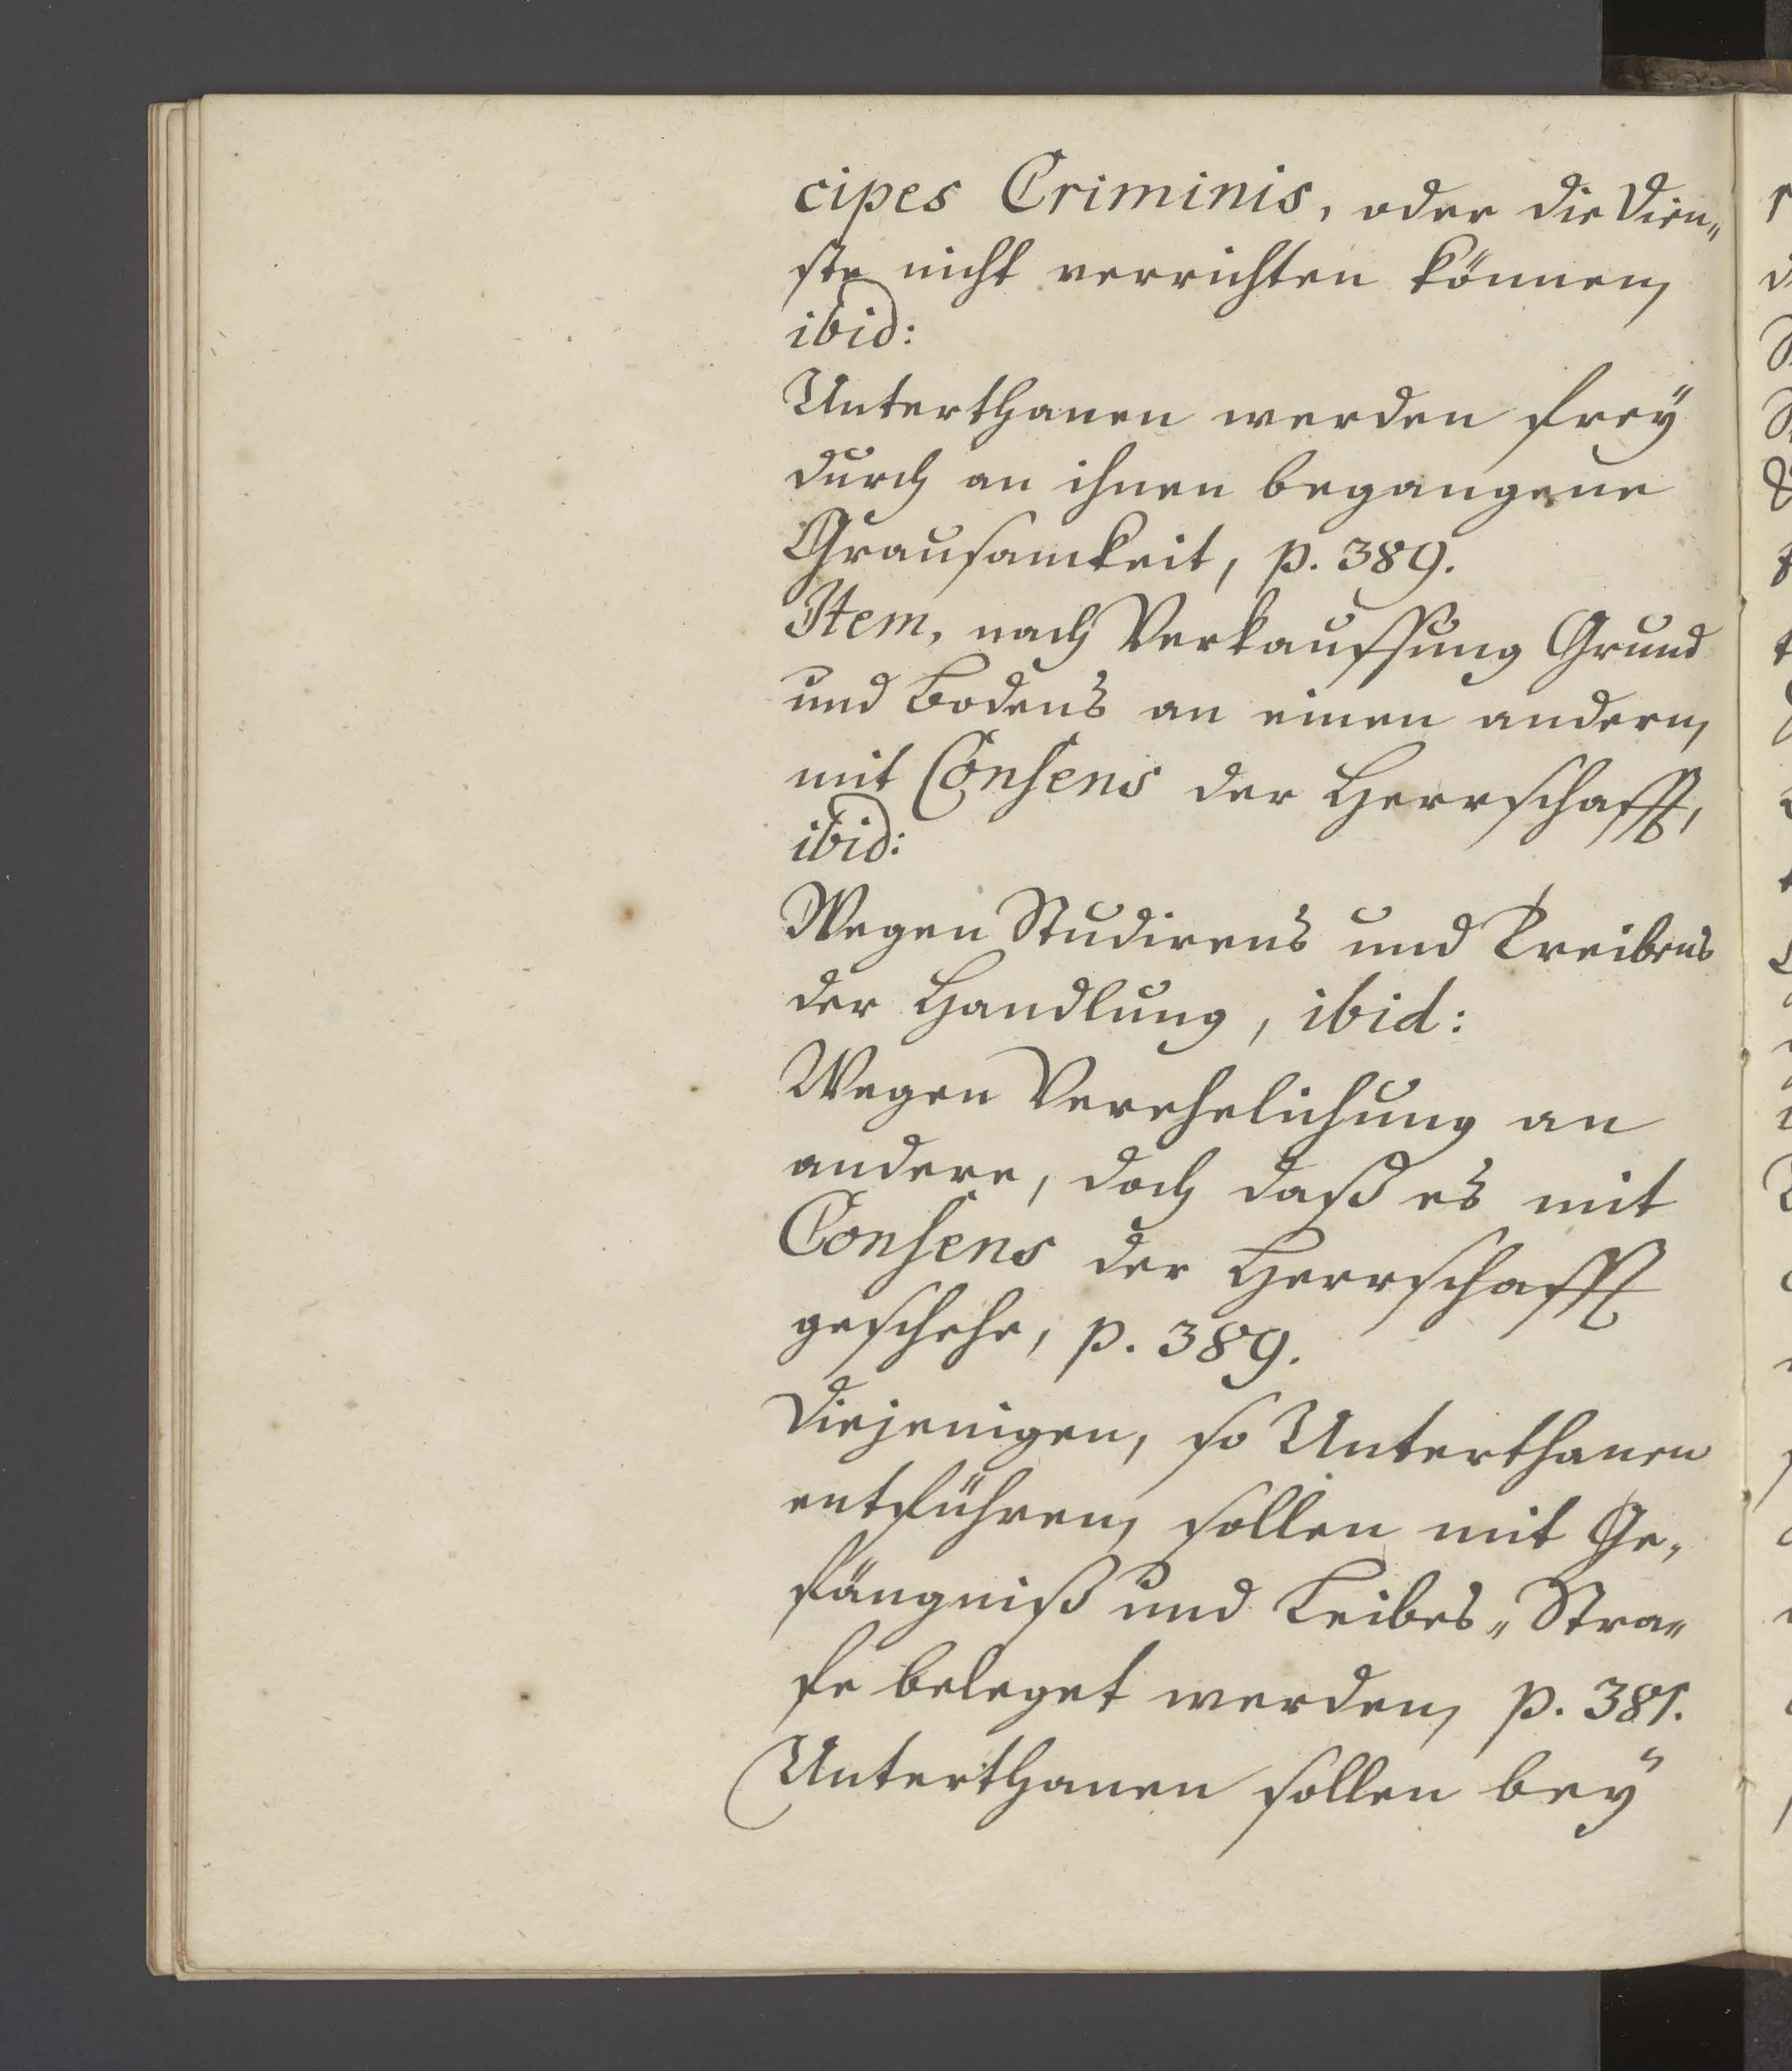 cipes Criminis, oder die Dien„
ste nicht verrichten können,
ibid:
Unterthanen werden freÿ
durch an ihnen begangene
Grausamkeit, p. 389.
Item, nach Verkauffung Grund
und Bodens an einen andern,
mit Consens der Herrschafft,
ibid:
Wegen Studirens und Treibens
der Handlung, ibid:
Wegen Verehelichung an
andere, doch daß es mit
Consens der Herrschafft
geschehe, p. 389.
Diejenigen, so Unterthanen
entführen, sollen mit Ge„
fängniß und Leibes„Stra„
fe beleget werden, p. 381.
Unterthanen sollen beÿ